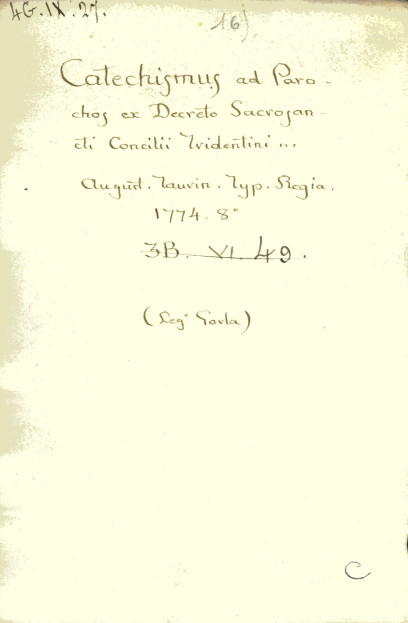 4G.IX.27.
16)
Catechismus ad Paro-
chos ex Decreto Sacrosan-
cti Concilii Tridentini ...
August. Taurin. Typ. Regia.
1774. 8°
3B. VI. 49.
(Leg° Gorla)
C